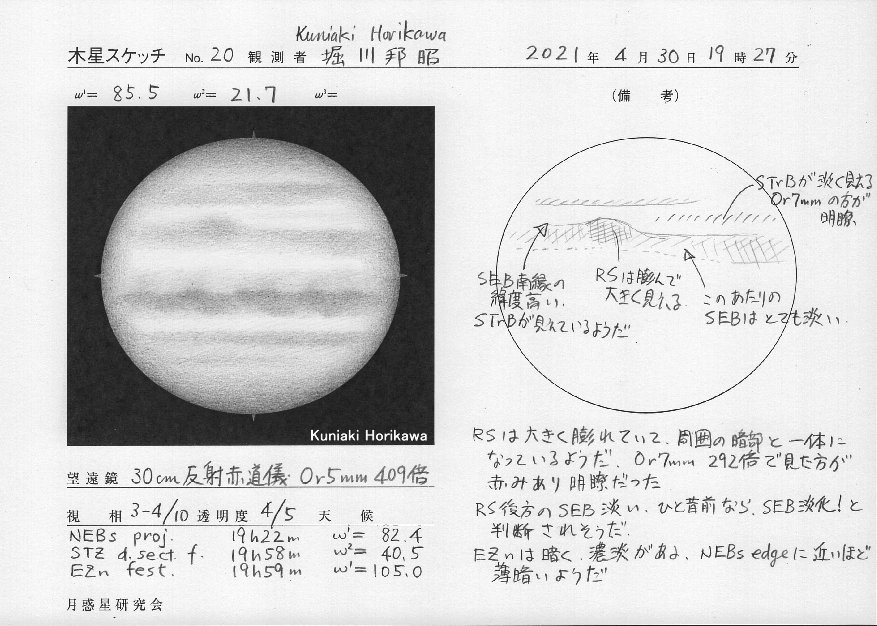 Kuniaki Horikawa
木星スケッチ No. 20 観測者 堀川邦昭 2021年 4月 30日 19時 27分
ω¹= 85.5 ω²= 21.7 ω³=
(備 考)
STrBが淡く見える
Or7mmの方が
明瞭
SEB南縁の
緯度高い.
STrBが見えているようだ
RSは膨んで
大きく見える
このあたりの
SEBはとても淡い.
Kuniaki Horikawa
望遠鏡 30cm反射赤道儀 Or5mm 409倍
視 相 3-4/10 透明度 4/5 天 候
NEBs proj. 19h22m ω¹= 82.4
STZ d.sect f. 19h58m ω²= 40.5
EZn fest. 19h59m ω¹=105.0
月惑星研究会
RSは大きく膨れていて、周囲の暗部と一体に
なっているようだ. Or7mm 292倍で見た方が
赤みあり明瞭だった
RS後方のSEB淡い、ひと昔前なら、SEB淡化!と
判断されそうだ.
EZnは暗く、濃淡がある、NEBs edgeに近いほど
薄暗いようだ